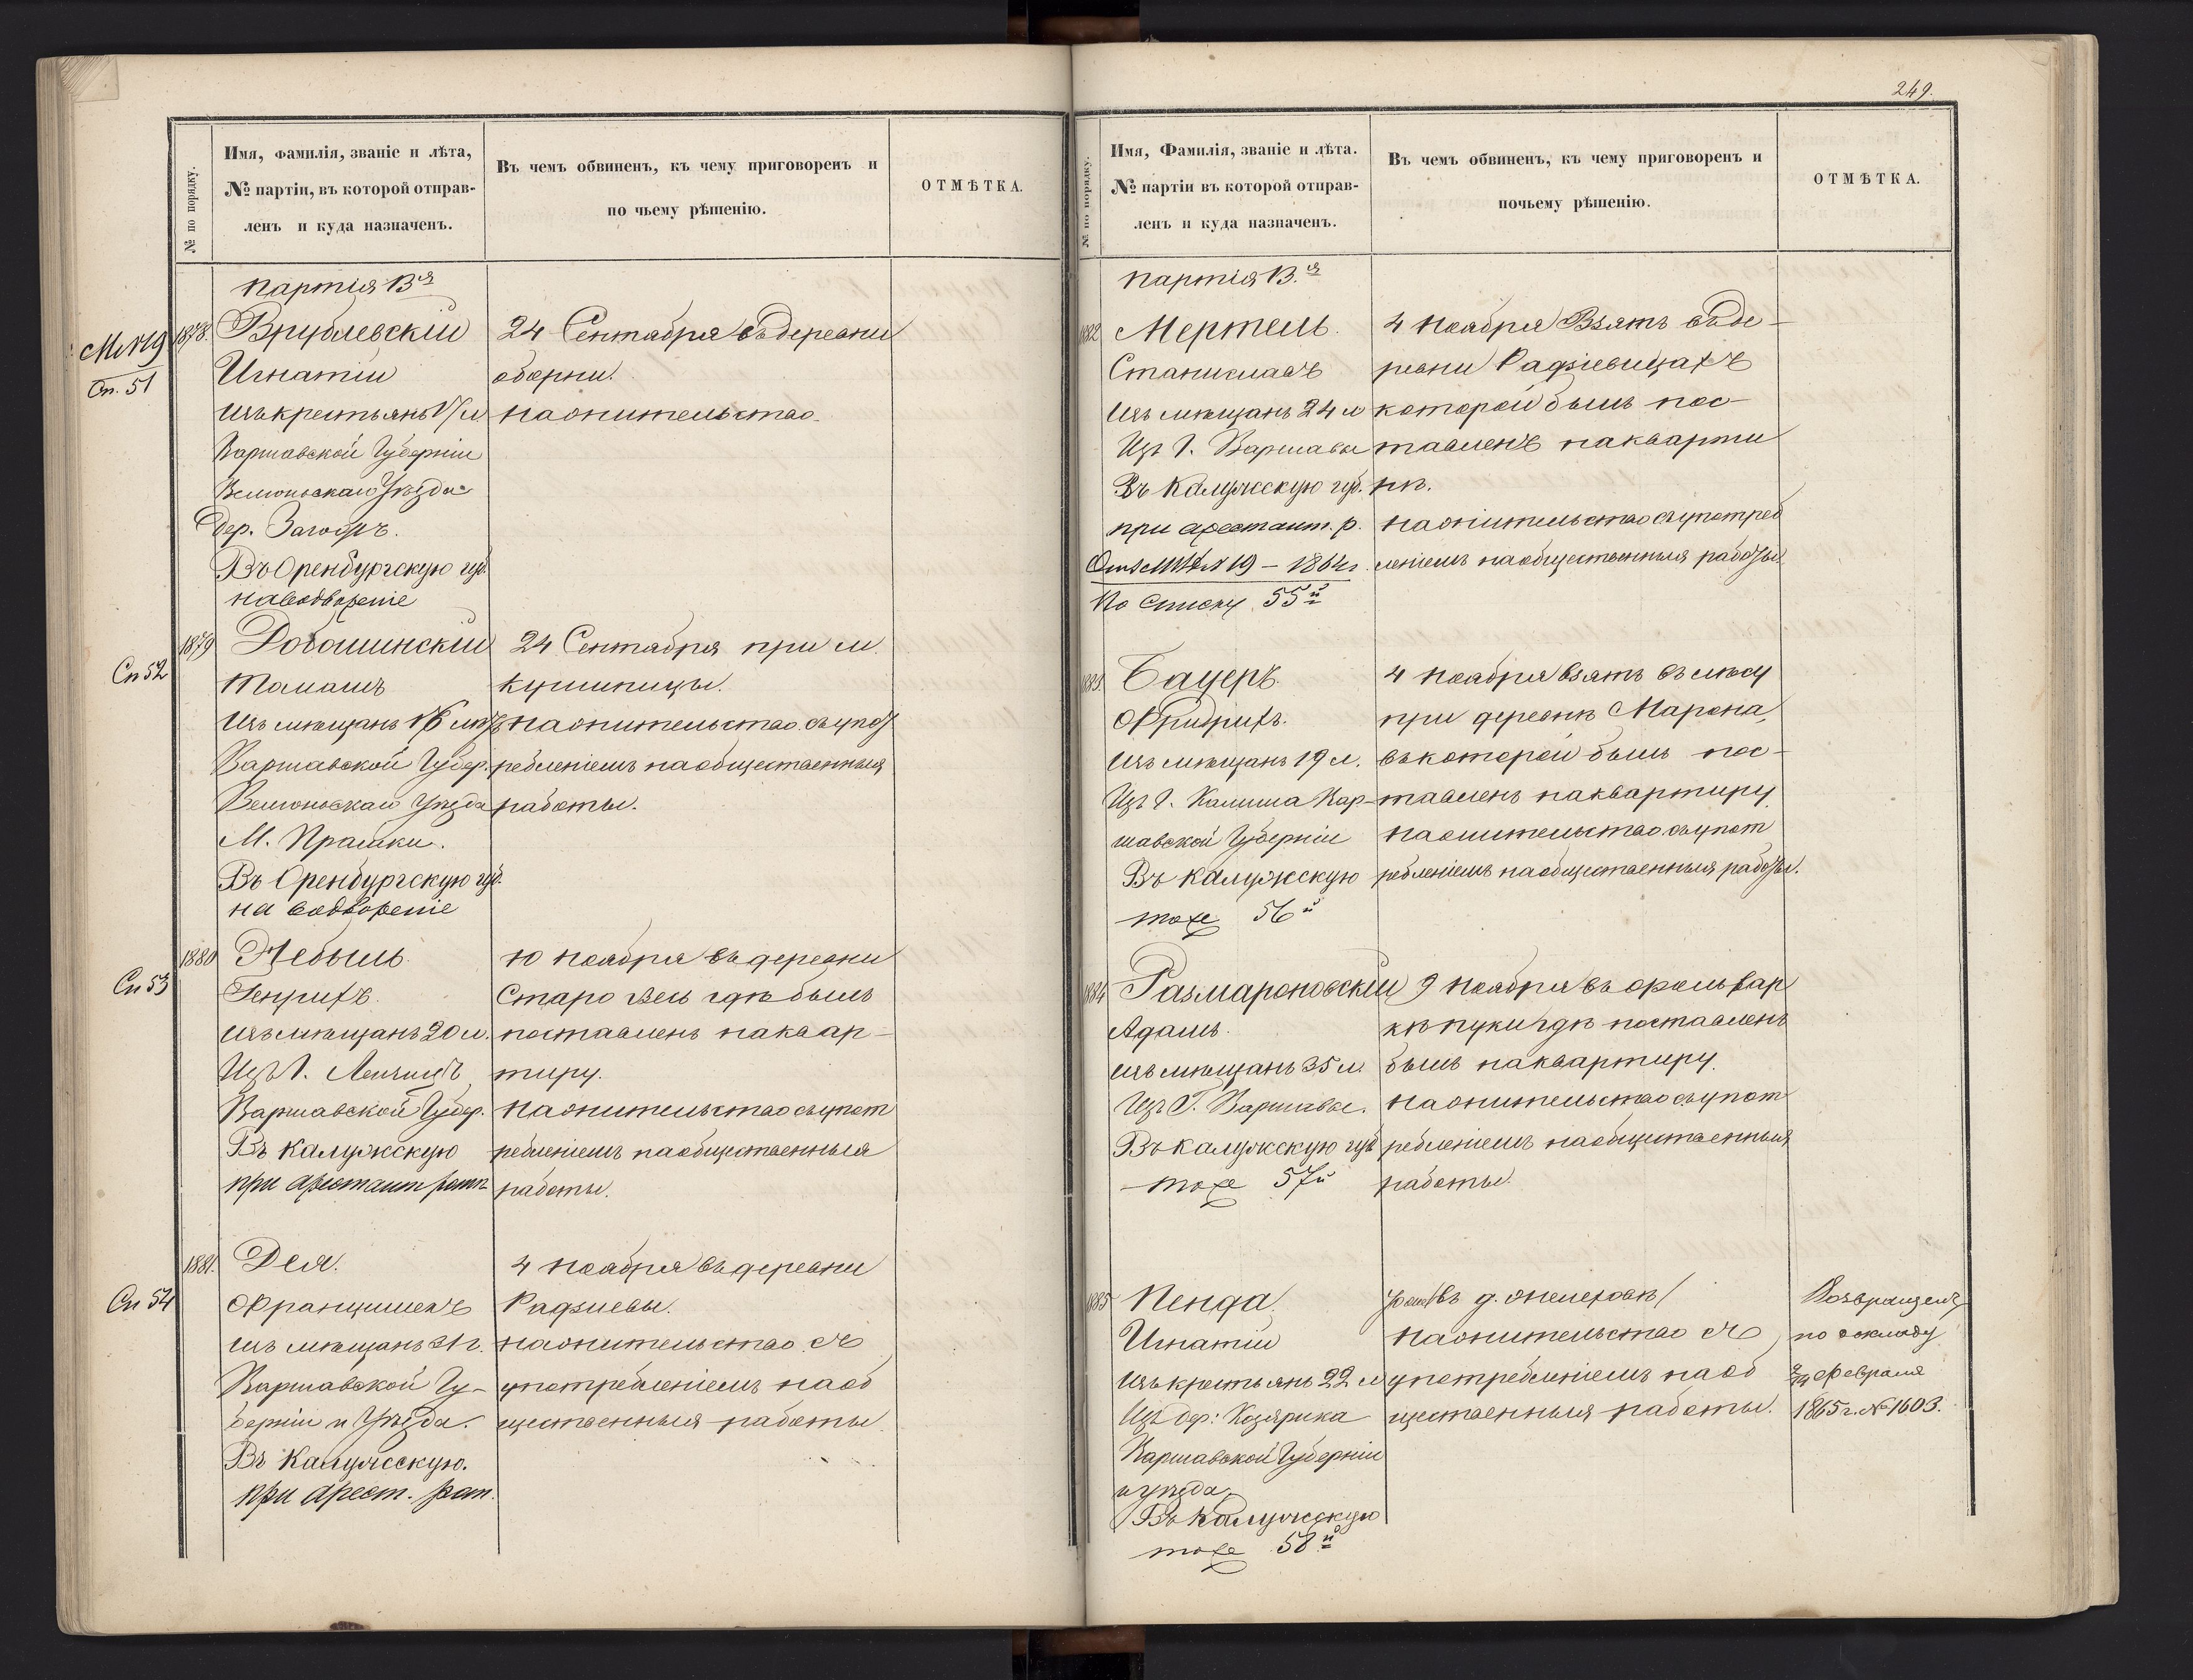 249.
№ по порядку.
Имя, фамилія, званіе и лѣта,
№ партіи, въ которой отправ-
ленъ и куда назначенъ.
Въ чемъ обвиненъ, къ чему приговоренъ и
по чьему рѣшенію.
ОТМѢТКА.
Партія В.я
М №19
Сп. 51
1878.
Врублевскій
Игнатій
изъ крестьянъ
Варшавской Губерніи
Велюньскаго Уѣзда
Дер.
Въ Оренбургскую губ.
на водвореніе
24 Сентября въ деревни
на жительство
Сп 52
1879
Томашъ
изъ мѣщанъ
Варшавской Губер.
Велюньскаго Уѣзда
М. Прашки.
Въ Оренбургскую губ.
на водвореніе
24 Сентября при м.
на жительство съ упот
ребленіемъ на общественныя
работы.
Сп 53
1880
Генрихъ.
изъ мѣщанъ 20 л.
Изъ г.
Варшавской Губер.
Въ Калужскую
при арестант. ротѣ
10 Ноября въ деревни
гдѣ былъ
поставленъ на квар-
тиру.
на жительство съ упот
ребленіемъ на общественныя
работы.
Сп 54
1881.
Дея.
Францишекъ
изъ мѣщанъ 21 г.
Варшавской Гу-
берніи и Уѣзда.
Въ Калужскую.
при арест. рот.
4 Ноября въ деревни
на жительство съ
употребленіемъ на об
щественныя работы.
№ по порядку.
Имя, Фамилія, званіе и лѣта.
№ партіи въ которой отправ-
ленъ и куда назначенъ.
Въ чемъ обвиненъ, къ чему приговоренъ и
почьему рѣшенію.
ОТМѢТКА.
Партія В.я
1882
Мертель.
Станиславъ
изъ мѣщанъ 24 л
Изъ Г. Варшавы
Въ Калужскую губ.
при арестант. р.
№ 19 – 1864 г.
По списку 55й
4 Ноября Взятъ въ де-
ревни Радзіевицахъ
которой былъ пос-
тавленъ на кварти
рѣ.
на жительство съ употреб
леніемъ на общественныя работы.
1883.
Бауеръ.
Фридрихъ.
изъ мѣщанъ 19 л.
Изъ г. Калиша Вар-
шавской Губерніи
Въ Калужскую
тоже 56й
4 Ноября взятъ въ лѣсу
при деревнѣ
въ которой былъ пос-
тавленъ на квартиру
на жительство съ упот
ребленіемъ на общественныя работы.
1884
Адамъ.
изъ мѣщанъ 35 л.
Изъ Г. Варшавы.
Въ Калужскую губ
тоже 57й
9 Ноября въ фольвар
кѣ гдѣ поставленъ
былъ на квартиру.
на жительство съ упот
ребленіемъ на общественныя
работы.
1885
Пенда.
Игнатій
изъ крестьянъ 22 л
Изъ дер:
Варшавской Губерніи
и уѣзда.
Въ Калужскую
тоже 58й
въ д.
на жительство съ
употребленіемъ на об
щественныя работы.
Возвращенъ
по докладу
Февраля
1865 г. № 1603.